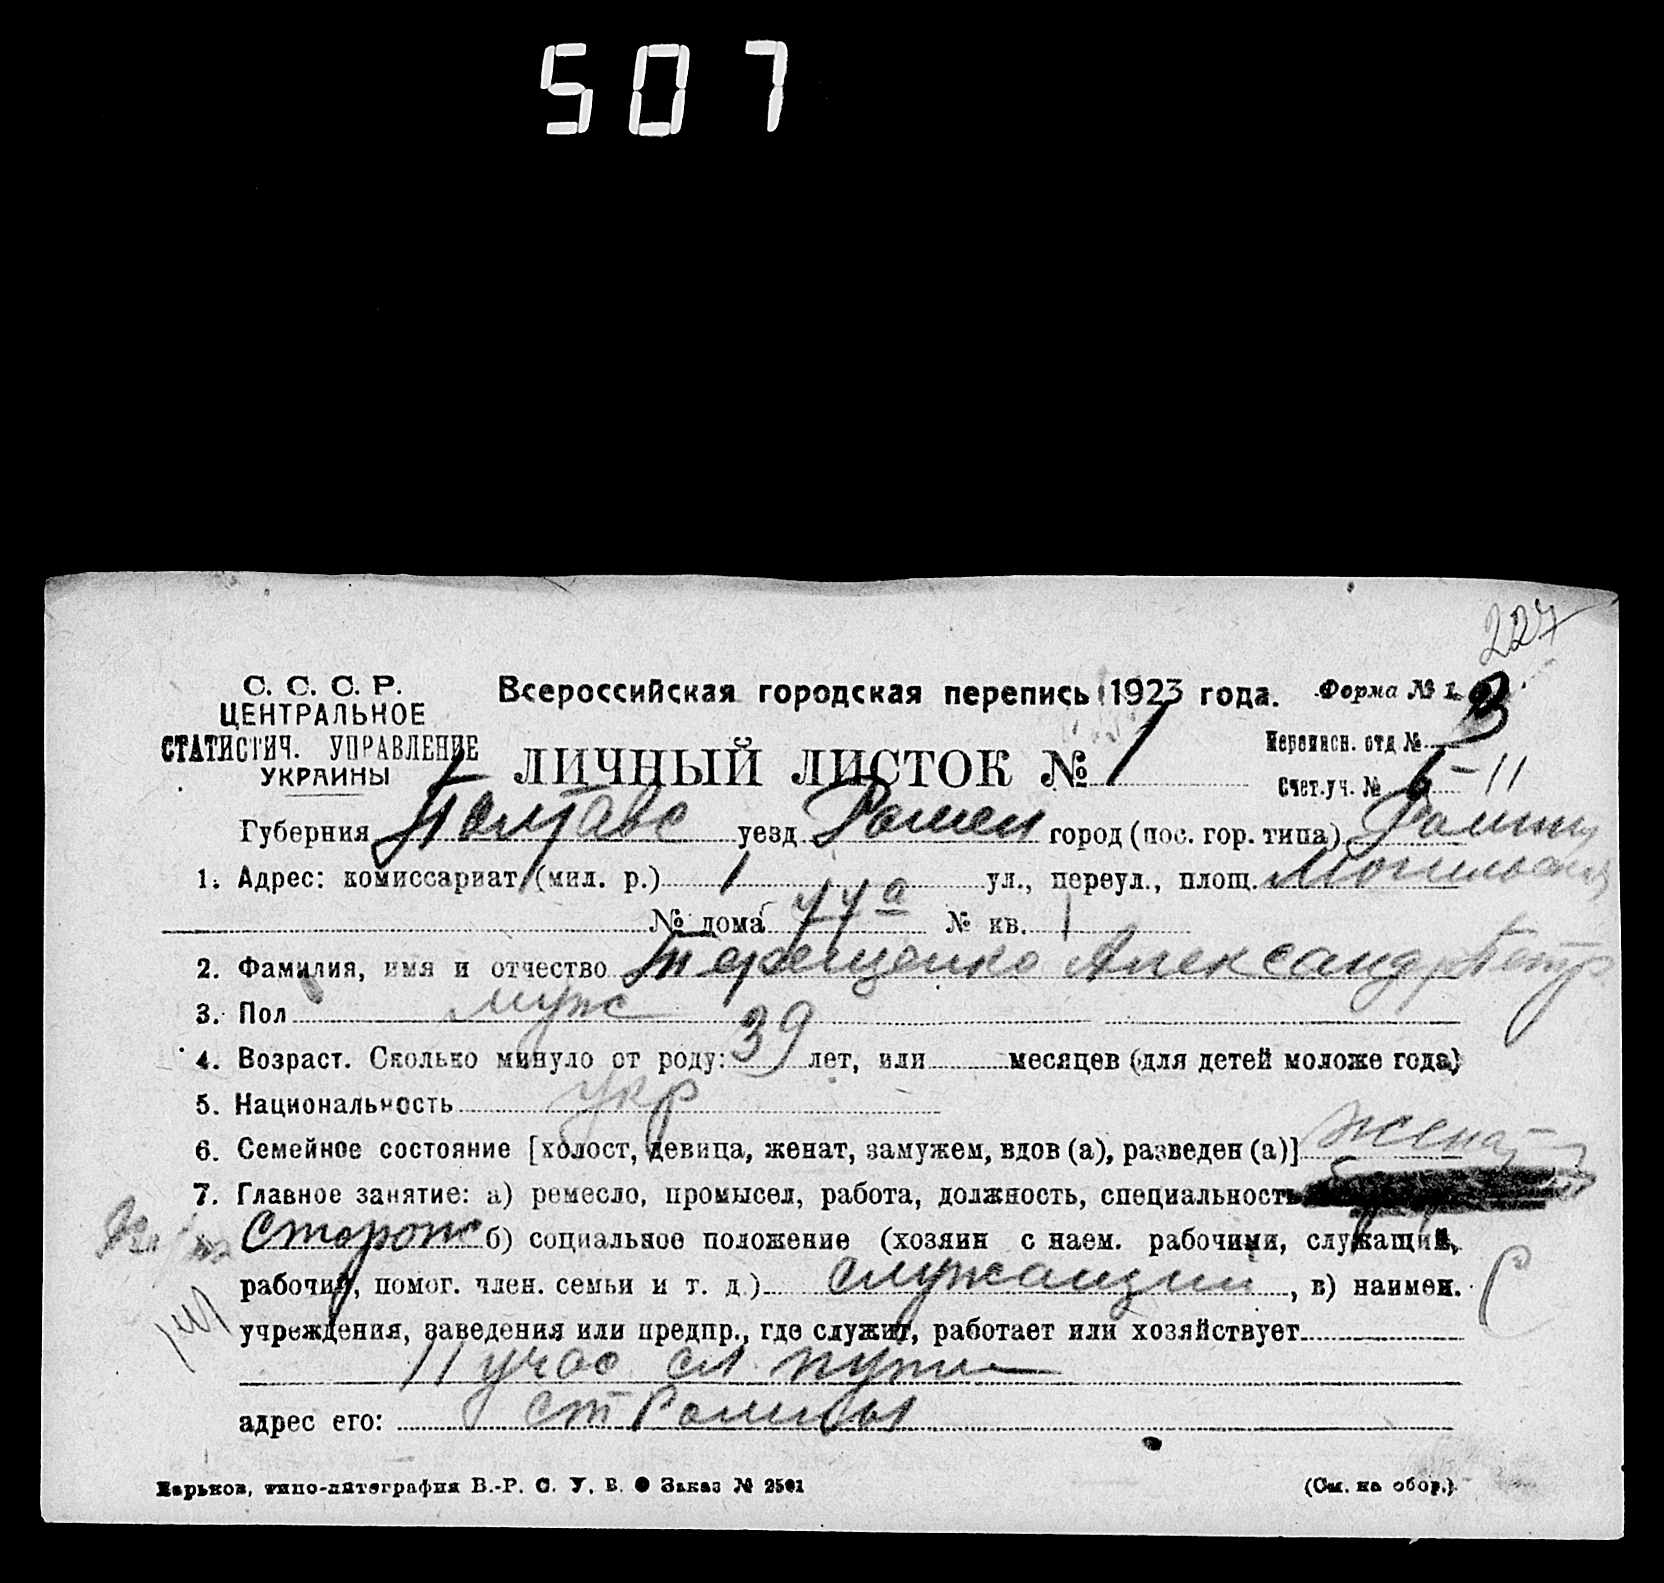 507
227
С. С. С. Р.
ЦЕНТРАЛЬНОЕ
СТАТИСТИЧ. УПРАВЛЕНИЕ
УКРАИНЫ
Всероссийская городская перепись 1923 года.
Форма № 1.
ЛИЧНЫЙ ЛИСТОК № 1
Переписн. отд № 3
Счет.уч. № 6-11
Губерния Полтавс уезд Ромен город (пос. гор. типа) Ромны
1. Адрес: комиссариат (мил. р.) 1 ул., переул., площ.
№ дома 44а № кв. 1
2. Фамилия, имя и отчество Терещенко Александр Петр
3. Пол муж
4. Возраст. Сколько минуло от роду: 39 лет, или месяцев (для детей моложе года)
5. Национальность укр
6. Семейное состояние [холост, девица, женат, замужем, вдов (а), разведен (а)] женат
7. Главное занятие: а) ремесло, промысел, работа, должность, специальность
Сторож б) социальное положение (хозяин с наем. рабочими, служащий,
рабочий, помог. член. семьи и т. д.) служащий, в) наимен. С
учреждения, заведения или предпр., где служит, работает или хозяйствует
11 учас сл пути
адрес его: ст Ромны
Харьков, типо-литография В.-Р. С. У. В. Заказ № 2501
(См. на обор.)